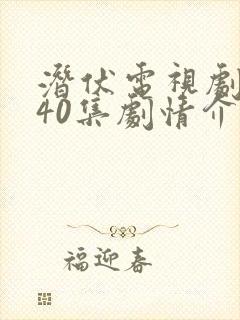 潛伏電視劇
40集劇情介
福迎春